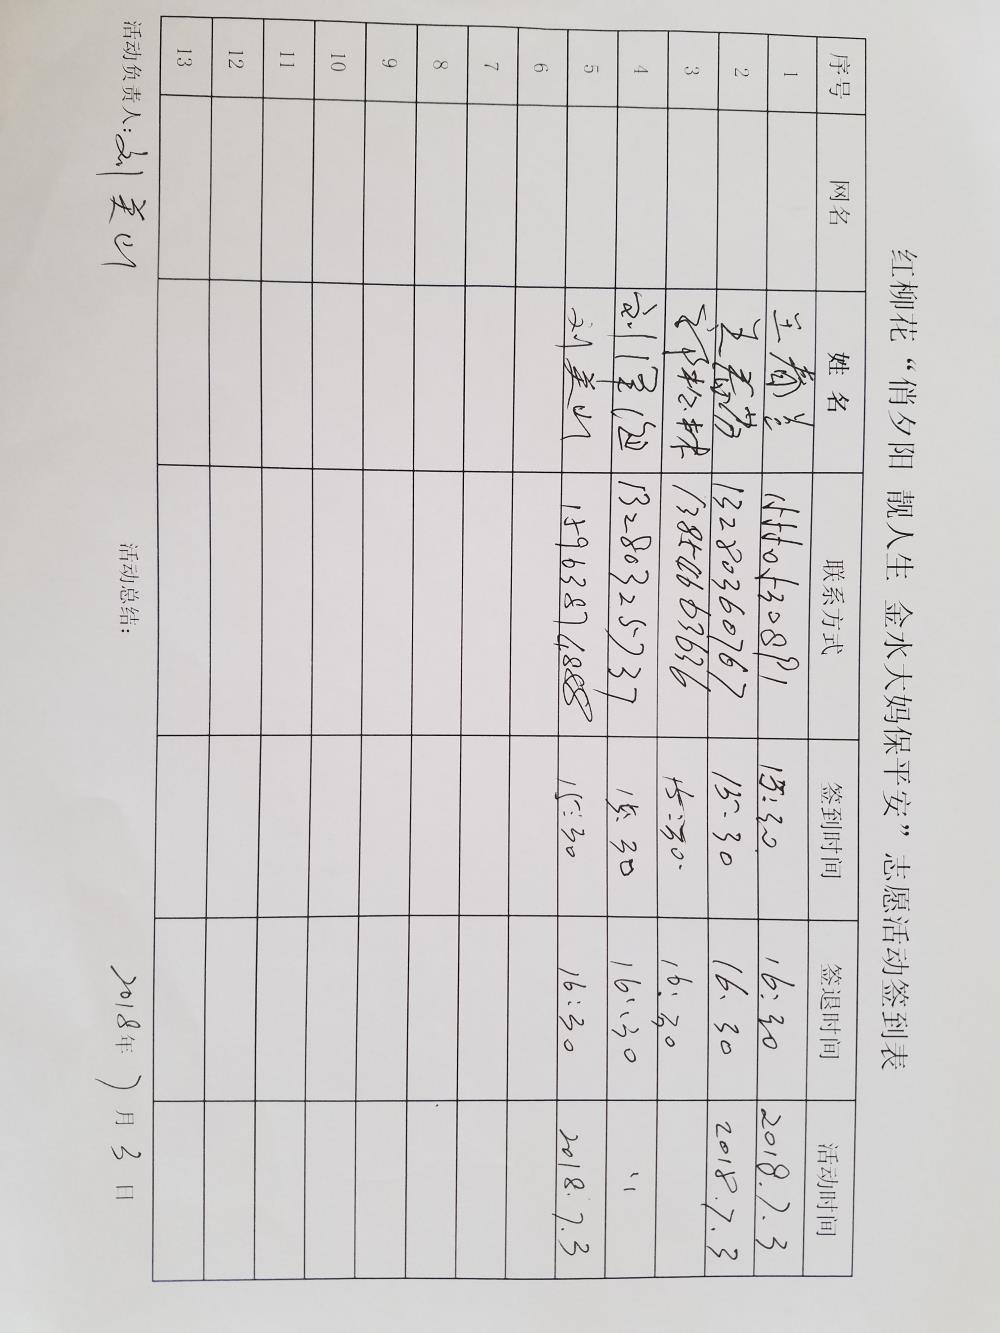 红柳花“俏夕阳 靓人生 金水大妈保平安”志愿活动签到表
序号 网名 姓名 联系方式 签到时间 签退时间 活动时间
1 15:30 16:30 2018.7.3
2 13280360767 15:30 16:30 2018.7.3
3 15:30 16:30
4 13280325737 15:30 16:30 〃
5 刘美山 15963874888 15:30 16:30 2018.7.3
6
7
8
9
10
11
12
13
活动负责人:刘美山 活动总结: 2018年7月3日